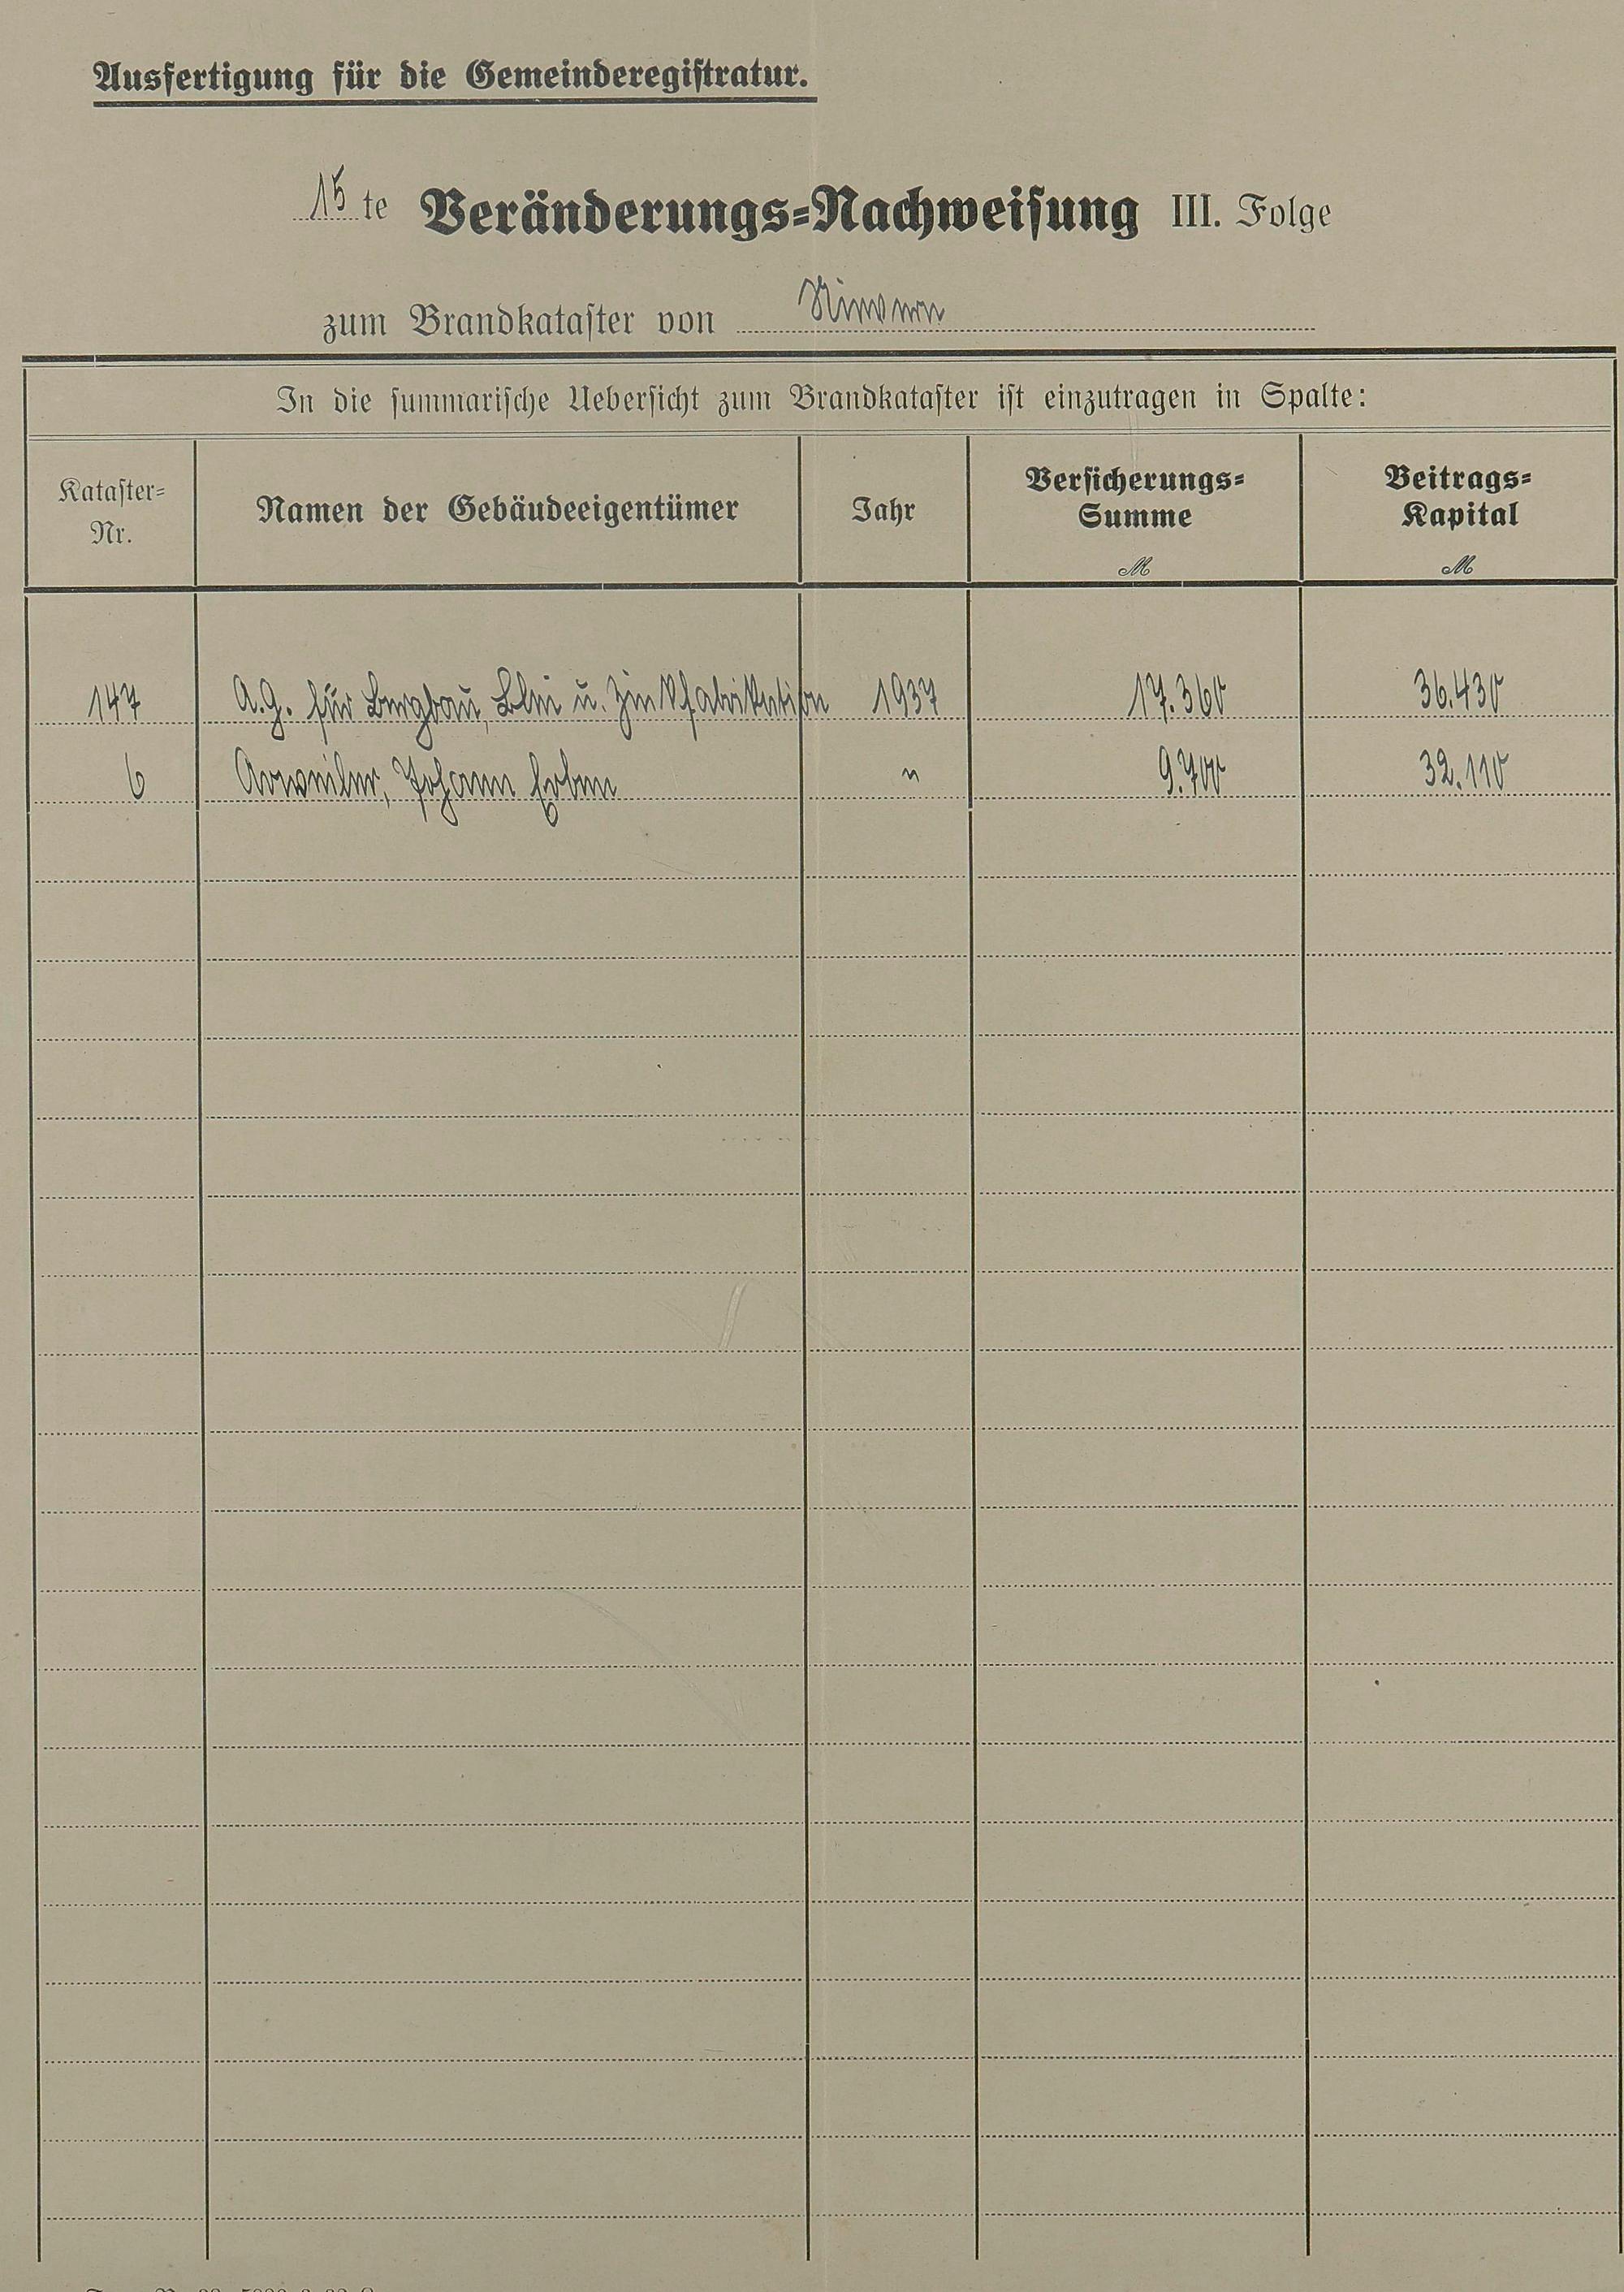 Ausfertigung für die Gemeinderegistratur.
15te Veränderungs-Nachweisung III. Folge
zum Brandkataster von
In die summarische Uebersicht zum Brandkataster ist einzutragen in Spalte:
Kataster-Nr. Namen der Gebäudeeigentümer Jahr Versicherungs-Summe ℳ Beitrags-Kapital ℳ
147 A.G. für Bergbau, Blei u. Zinkfabrikation 1937 17.360 36.430
6 Arweiler, Johann Erben " 9.700 32.110